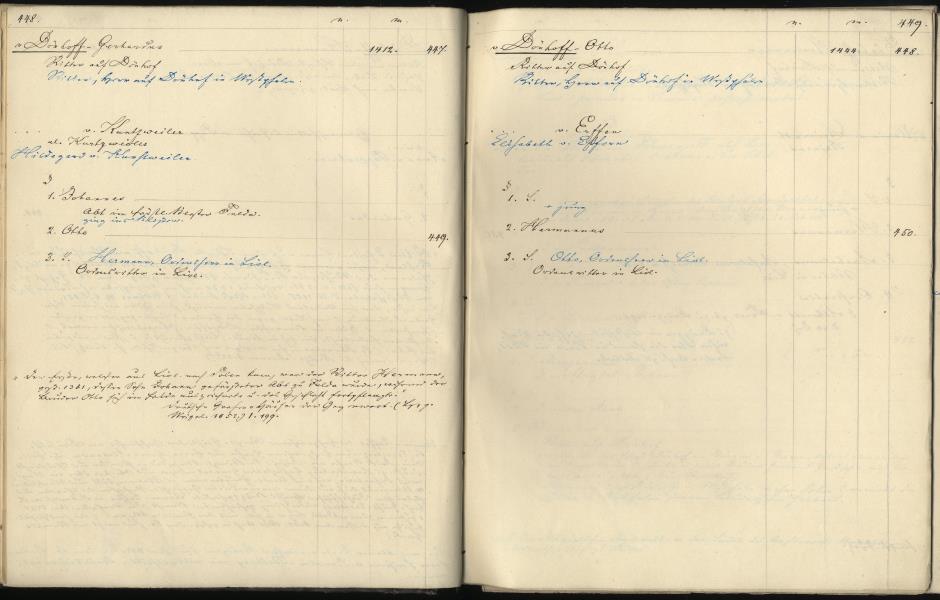 448. n. m.
v Dönhoff-Gerhardus 1412. 447.
Ritter auf Dönhof
Ritter, Herr auf Dönhof in Westphalen.
. . . v. Kuntzweiler
al. Kurtzweiler
Hildegard v. Kurtzweiler.
1. Johannes
Abt im Hochst. Kloster Fulda.
ging ins Kloster.
2. Otto 449.
3. S. Hermann, Ordensherr in Livl.
Ordensritter in Livl.
Der Erste, welcher aus Livl. nach Polen kam, war der Ritter Hermann,
gest. 1381, dessen Sohn Johann gefürsteter Abt zu Fulda wurde, während der
Bruder Otto sich in Fulda und das Geschlecht fortpflanzte.
Deutsche Grafen-Häuser der Gegenwart (Lpzg.
Weigel. 1852) I. 199.
n. m. 449.
v Dönhoff-Otto 1444 448.
Ritter auf Dönhof
Ritter, Herr auf Dönhof in Westphalen
. . . v. Effern
Elisabeth v. Effern
1. S.
+ jung
2. Hermannus 450.
3. S. Otto, Ordensherr in Livl.
Ordensritter in Livl.